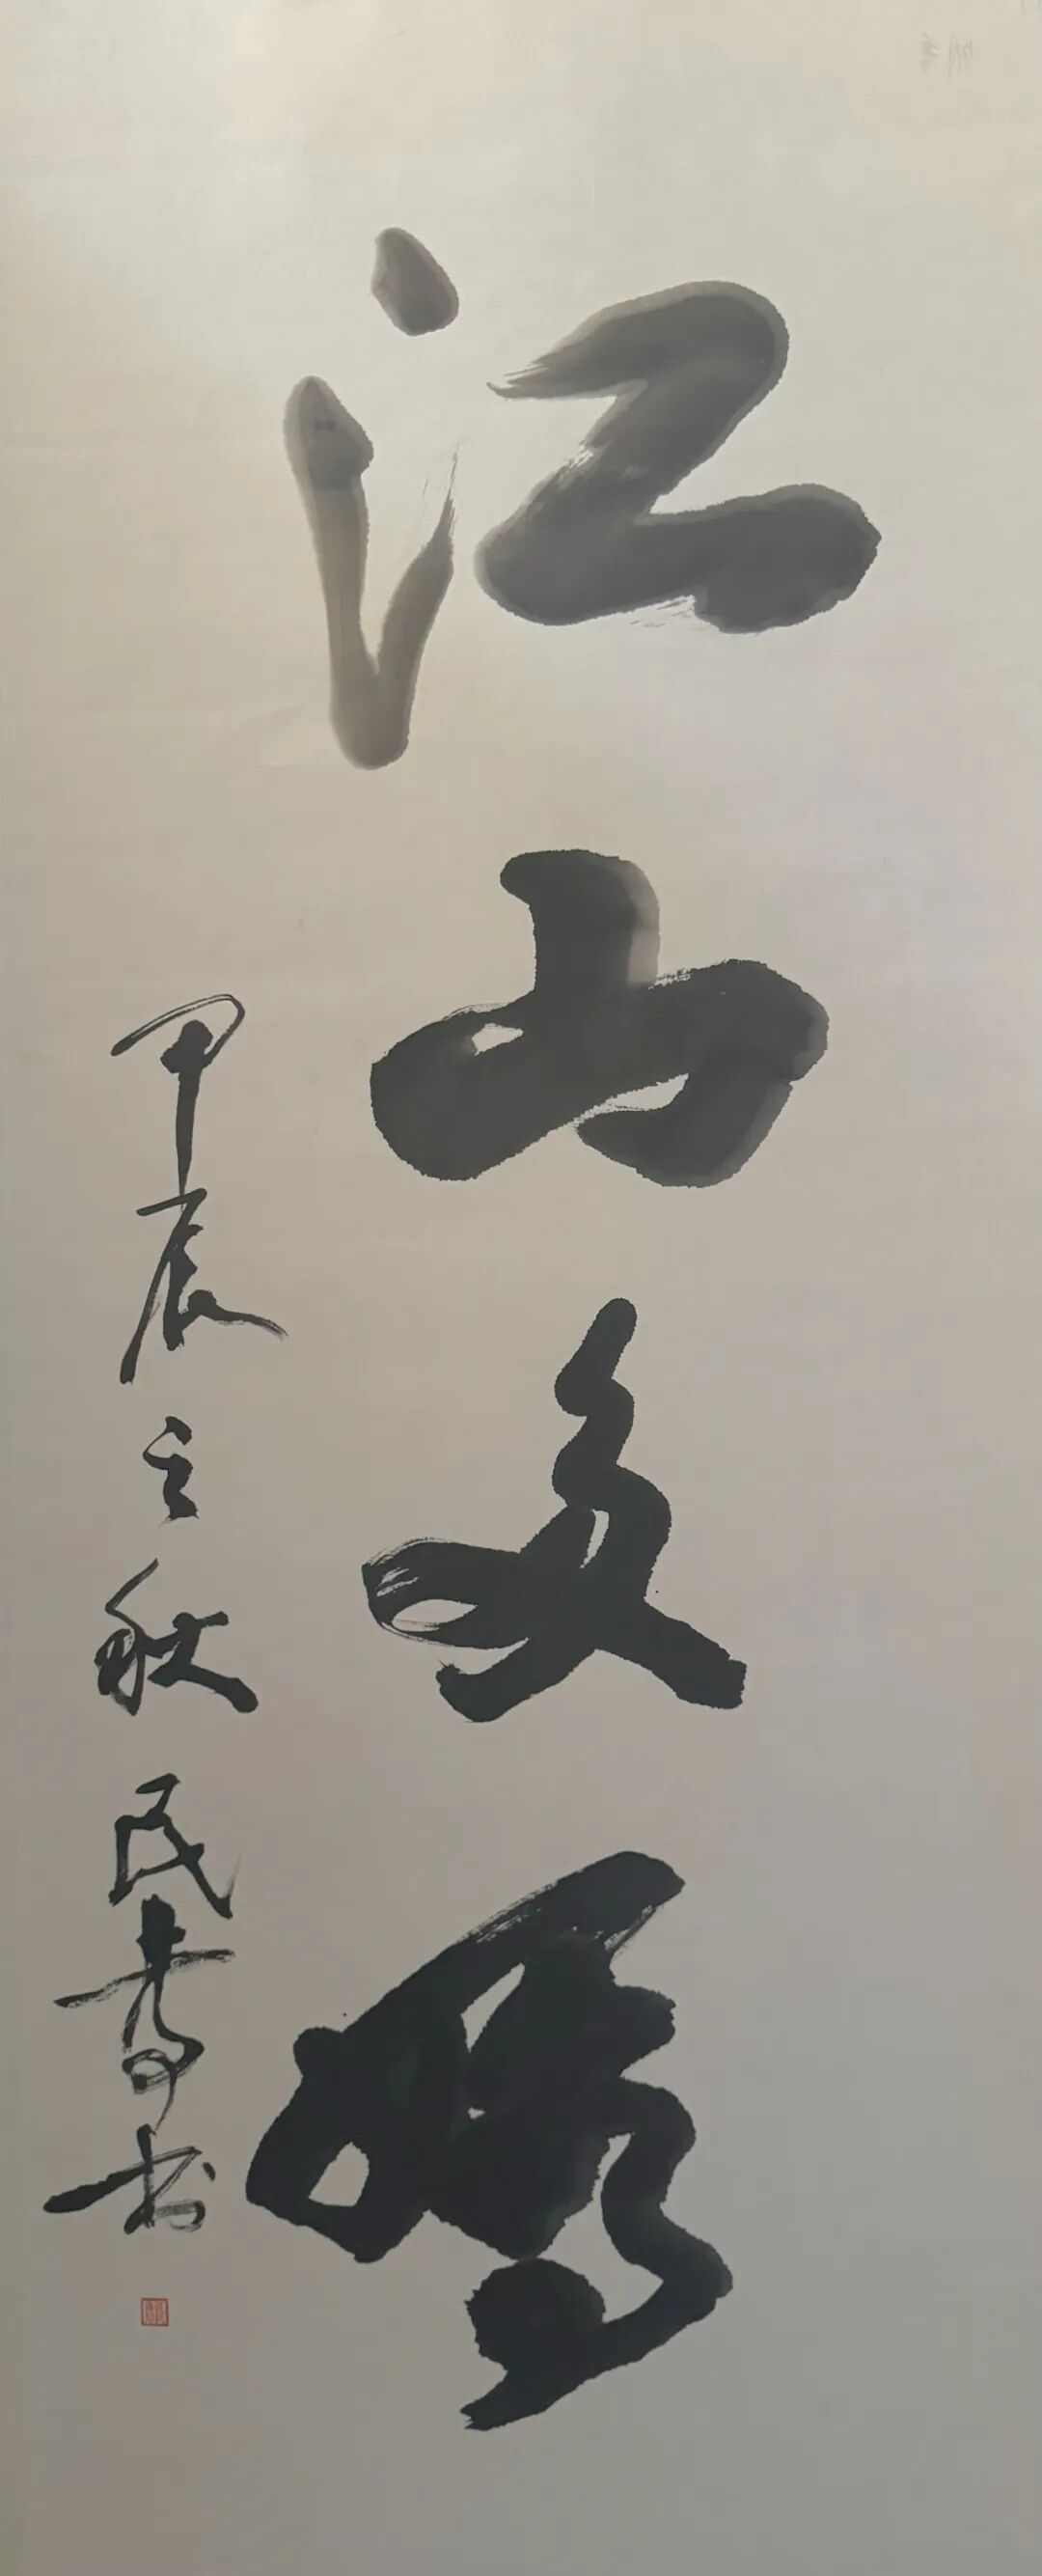 江山多娇
甲辰之秋民寿书